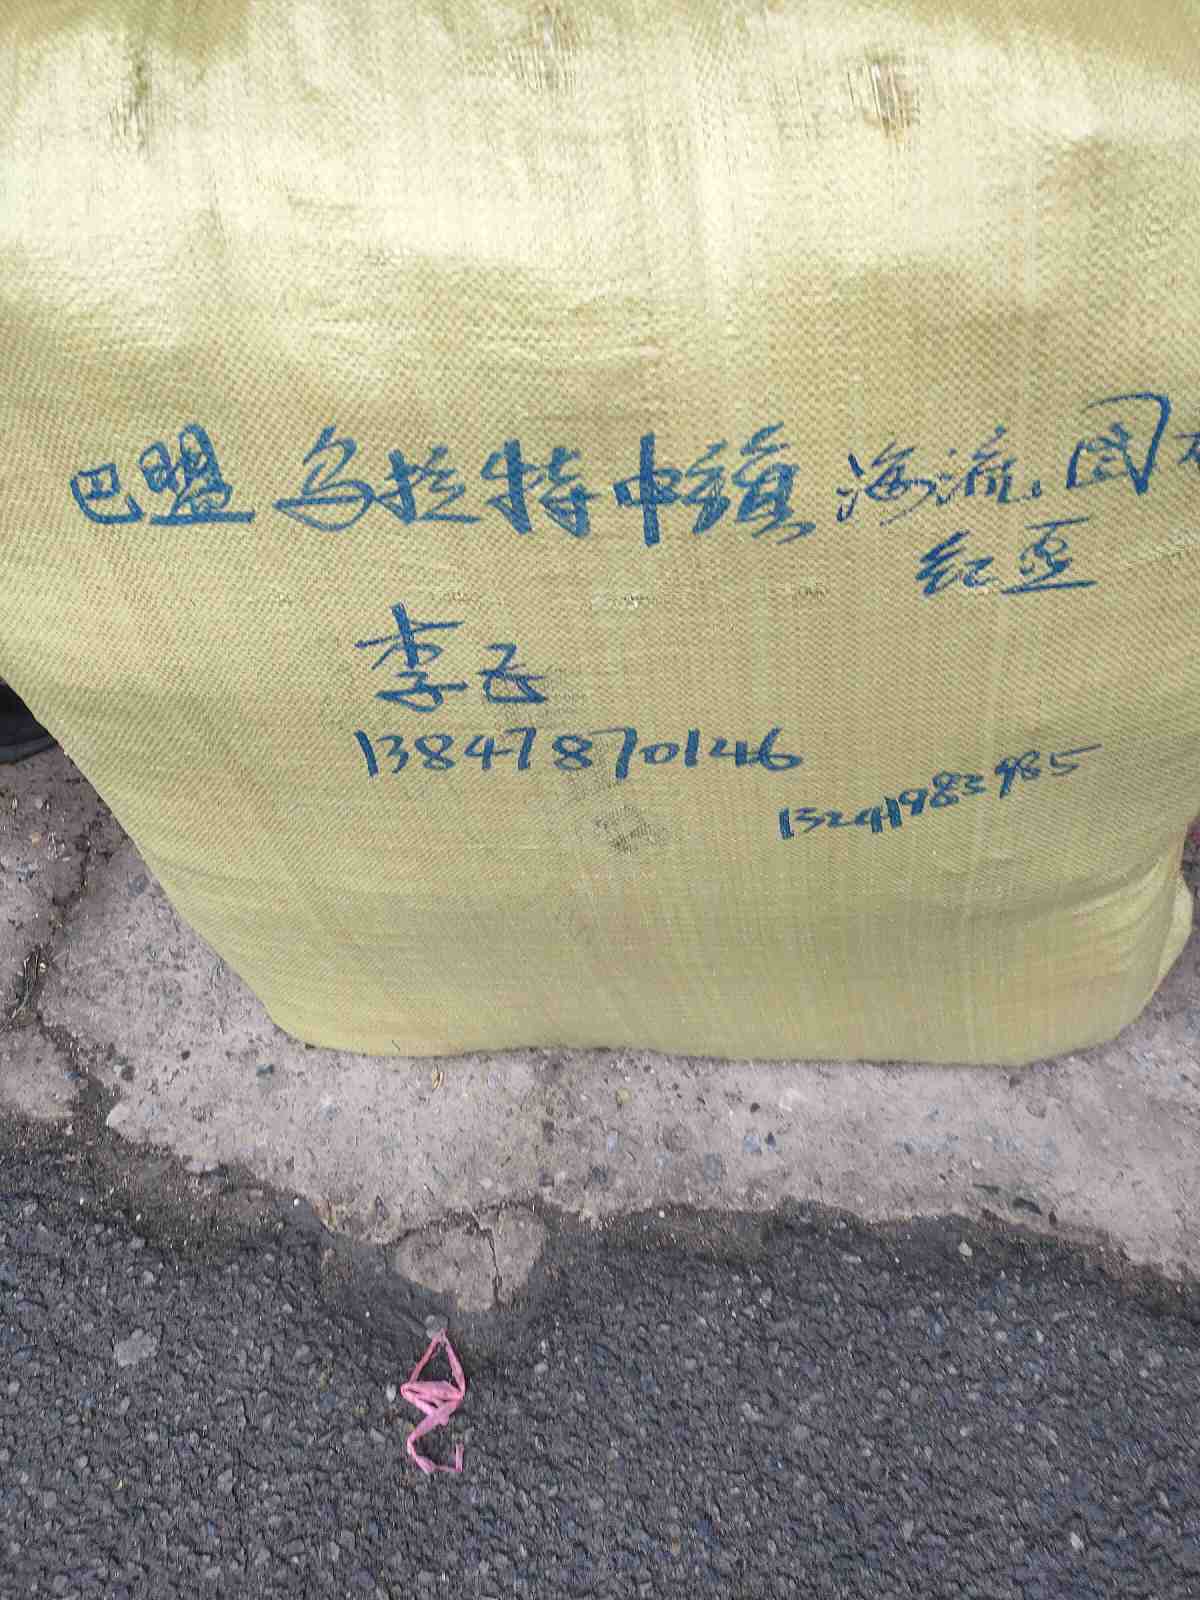 巴盟乌拉特中旗海流图
红豆
李飞
13847870146
13241983985